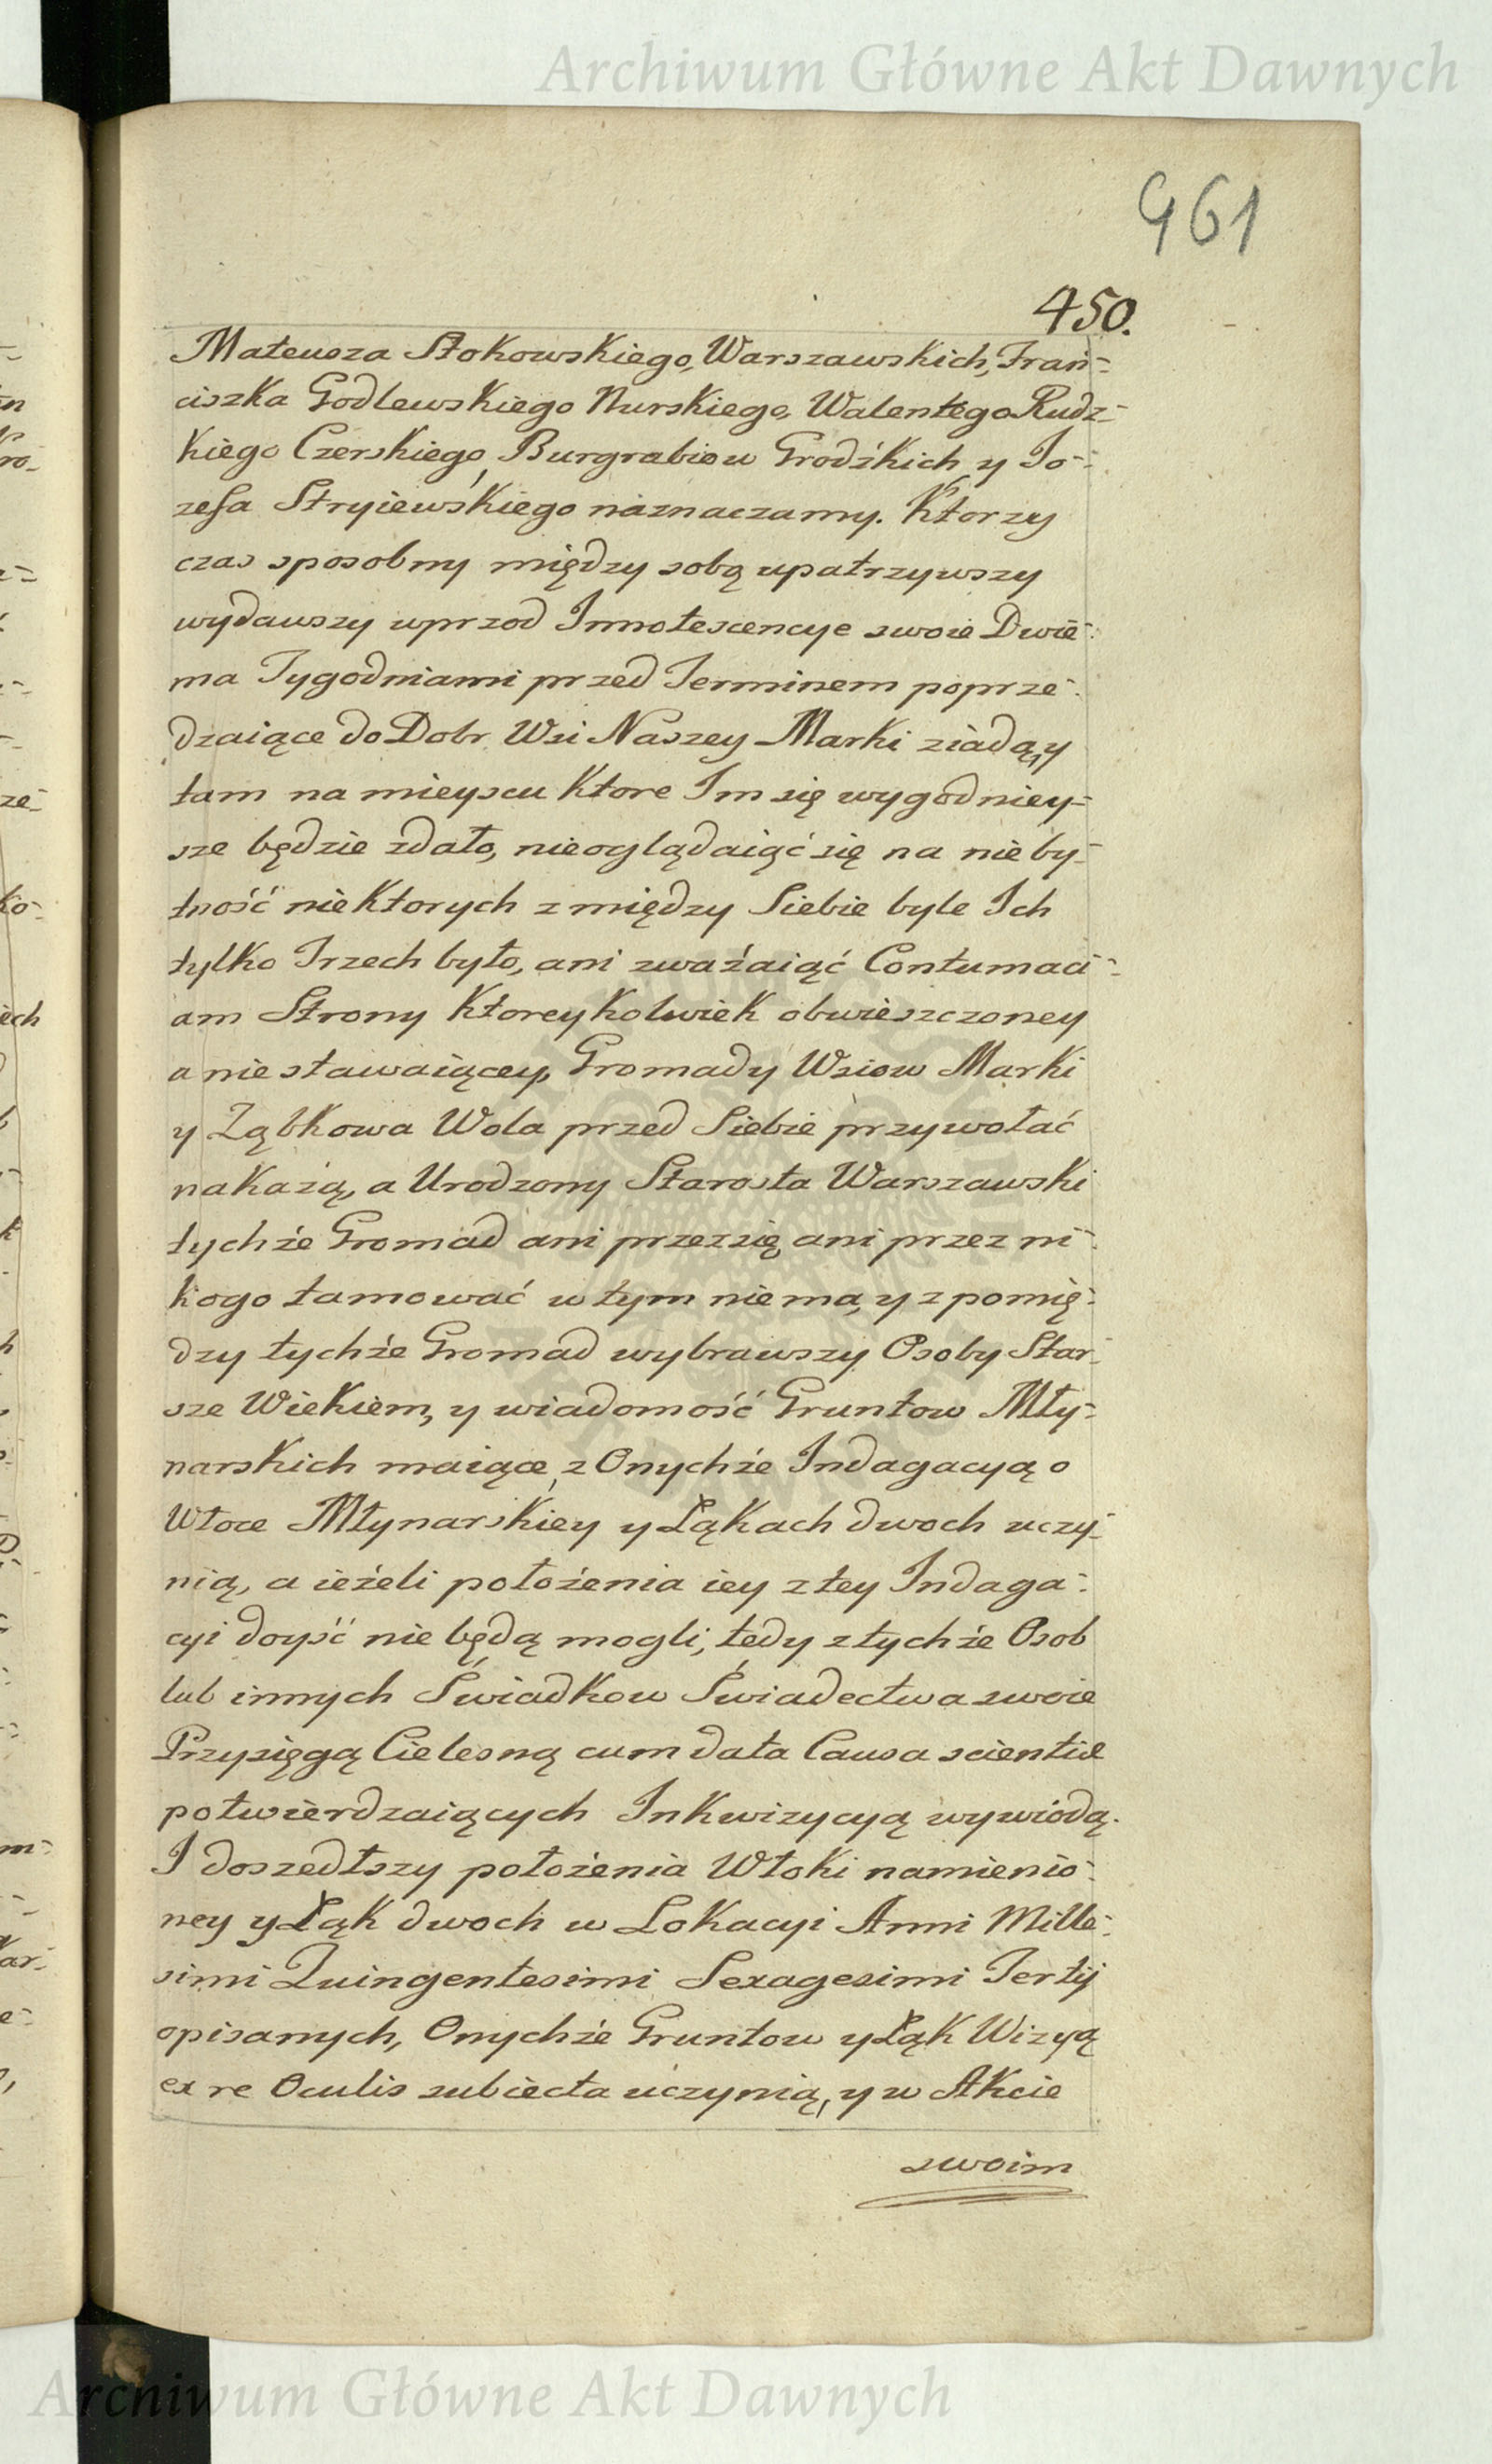 Archiwum Główne Akt Dawnych
961
450.
Mateusza Stokowskiego, Warszawskich, Fran=
ciszka Godlewskiego Nurskiego, Walentego Rudz=
kiego Czerskiego, Burgrabiow Grodźkich y Jo=
zefa Stryiewskiego naznaczamy. Ktorzy
czas sposobny między sobą upatrzywszy
wydawszy uprzod Innotescencye swoie Dwie=
ma Tygodniami przed Terminem poprze=
dzaiące do Dobr Wsi Naszey Marki ziadą, y
tam na mieyscu Ktore Im się wygodniey=
sze będzie zdało, nieoglądaiąć się na nieby=
tność nieKtorych z między Siebie byle Ich
tylko Trzech było, ani zważaiąć Contumaci=
am Strony Ktoreykolwiek obwieszczoney
a niestawaiącey, Gromady Wsiow Marki
y Ząbkowa Wola przed Siebie przywołać
nakażą, a Urodzony Starosta Warszawski
tychże Gromad ani przez się ani przez ni=
kogo tamować w tym nie ma, y z pomię=
dzy tychże Gromad wybrawszy Osoby Star=
sze Wiekiem, y wiadomość Gruntow Mły=
narskich maiące, z Onychże Indagacyą o
Włoce Młynarskiey y Łąkach dwoch uczy=
nią, a ieżeli położenia iey z tey Indaga=
cyi doyść nie będą mogli, tedy z tychże Osob
lub innych Świadkow Świadectwa swoie
Przysięgą Cielesną cum data Causa scientiæ
potwierdzaiących Inkwizycyą wywiodą.
I doszedłszy położenia Włoki namienio=
ney y Łąk dwoch w Lokacyi Anni Mille=
simi Quingentesimi Sexagesimi Tertij
opisanych, Onychże Gruntow y Łąk Wizyą
ex re Oculis subiecta uczynią, y w Akcie
swoim
Archiwum Główne Akt Dawnych